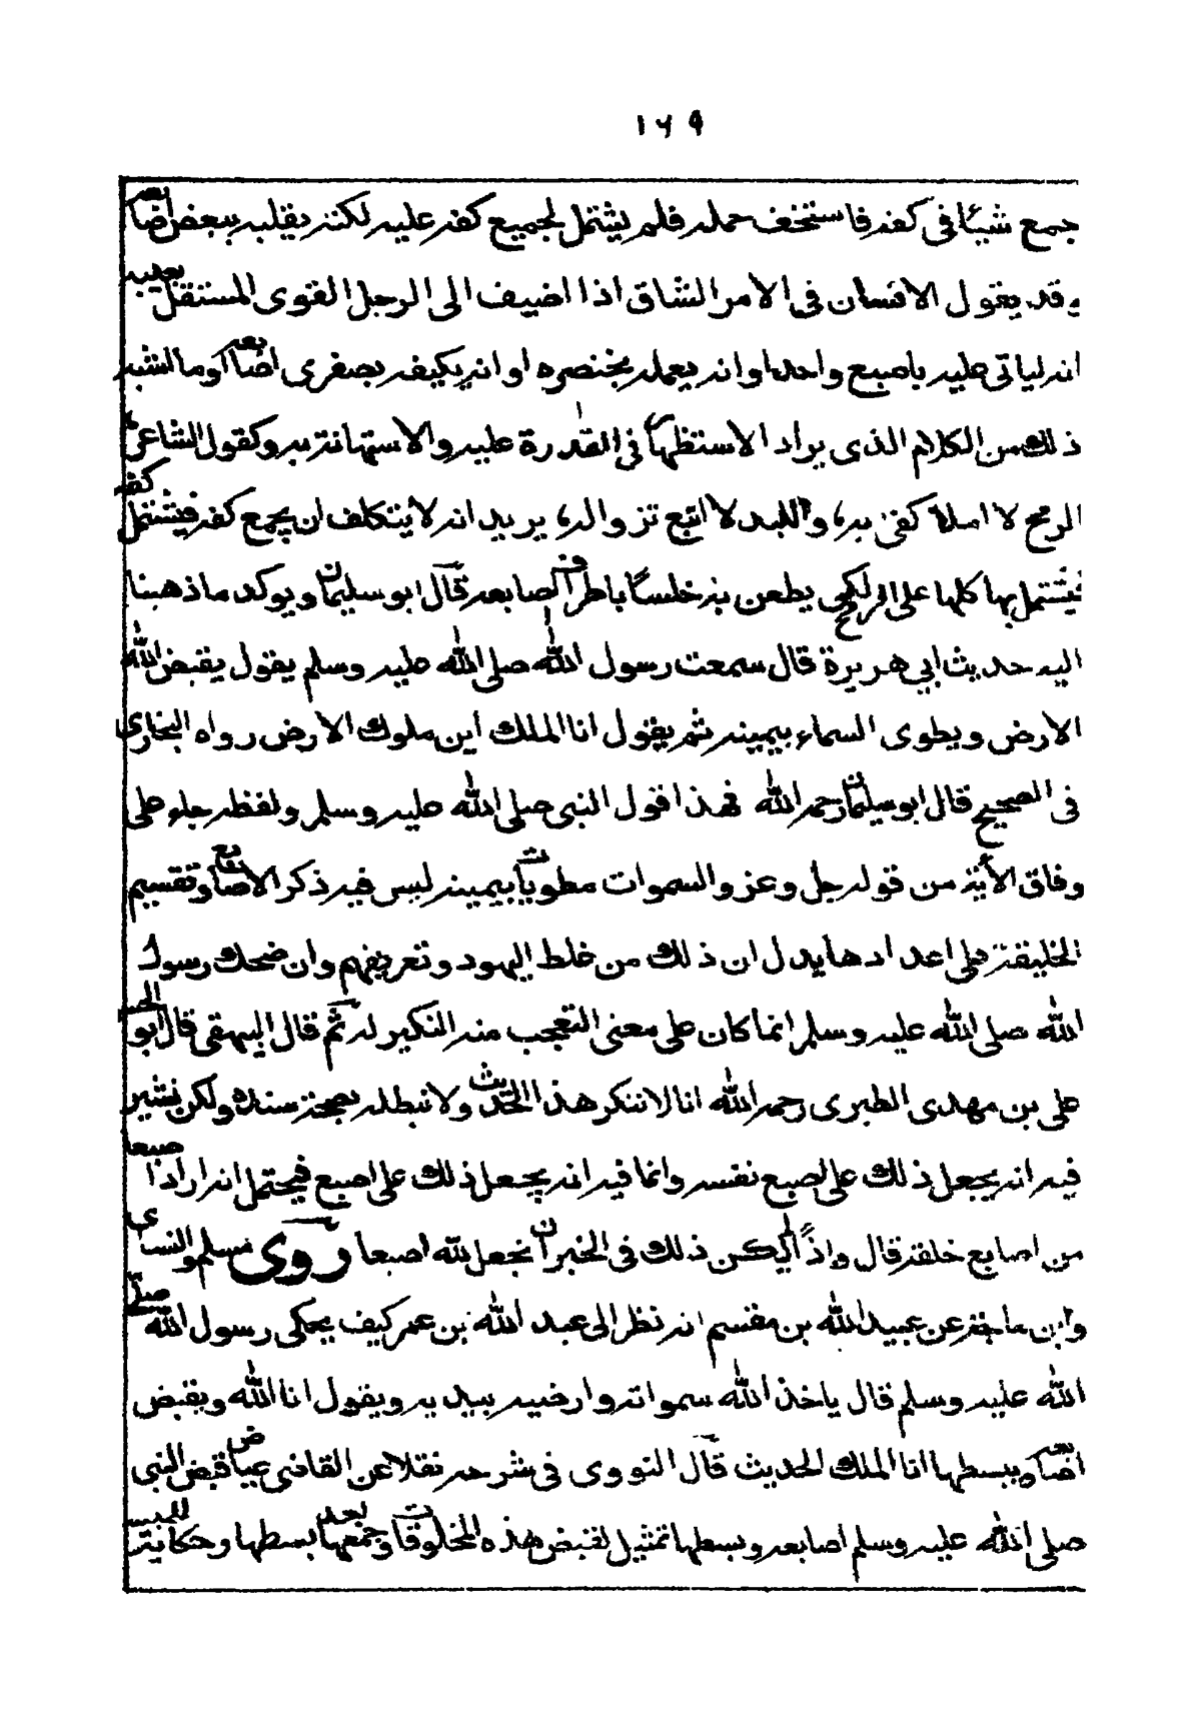 ١٦٩
جمع شيئا فى كفه فاستخف حمله فلم يشتمل لجميع كفه عليه لكنه يقلبه ببعض اصابعه
وقد يقول الانسان فى الامر الشاق اذا اضيف الى الرجل القوى المستقل بعبئه
انه لياتى عليه باصبع واحد او انه يعمله بخنصره او انه يكيفه بصغرى اصابعه وما اشبه
ذلك من الكلام الذى يراد الاستظهار فى القدرة عليه والاستهانة به وكقول الشاعر
الرمح لا املأ كفى به، واللبد لا اتبع تزواله، يريد انه لا يتكلف ان يجمع كفه فيشتمل
فيشتمل بها كلها على الرمح لكن يطعن به خلسا باطراف اصابعه قال ابو سليمان ويوكد ما ذهبنا
اليه حديث ابي هريرة قال سمعت رسول الله صلى الله عليه وسلم يقول يقبض الله
الارض ويطوى السماء بيمينه ثم يقول انا الملك اين ملوك الارض رواه البخارى
فى الصحيح قال ابو سليمان رحمه الله فهذا قول النبى صلى الله عليه وسلم ولفظه جاء على
وفاق الأية من قوله جل وعز والسموات مطويات بيمينه ليس فيه ذكر الاصابع وتقسيم
الخليقة على اعدادها يدل ان ذلك من خلط اليهود وتعريفهم وان ضحك رسول
الله صلى الله عليه وسلم انما كان على معنى التعجب منه النكير له ثم قال البيهقى قال ابو الحسن
على بن مهدى الطبرى رحمه الله انا لا ننكر هذا الحديث ولا نبطله بصحة سنده ولكن نشير
فيه انه يجعل ذلك على اصبع نفسه وانما فيه انه يجعل ذلك على اصبع فيحتمل انه اراد اصبعا
من اصابع خلقه قال واذا لم يكن ذلك فى الخبر ان نجعل لله اصبعا وروى مسلم والنسائى
وابن ماجة عن عبيد الله بن مقسم انه نظر الى عبد الله بن عمر كيف يحكى رسول الله صلى
الله عليه وسلم قال ياخذ الله سمواته وارضيه بيديه ويقول انا الله ويقبض
اصابعه ويبسطها انا الملك الحديث قال النووى فى شرحه نقلا عن القاضى عياض قبض النبى
صلى الله عليه وسلم اصابعه وبسطها تمثيل لقبض هذه المخلوقات وجمعها بعد بسطها وحكاية للمبسوط